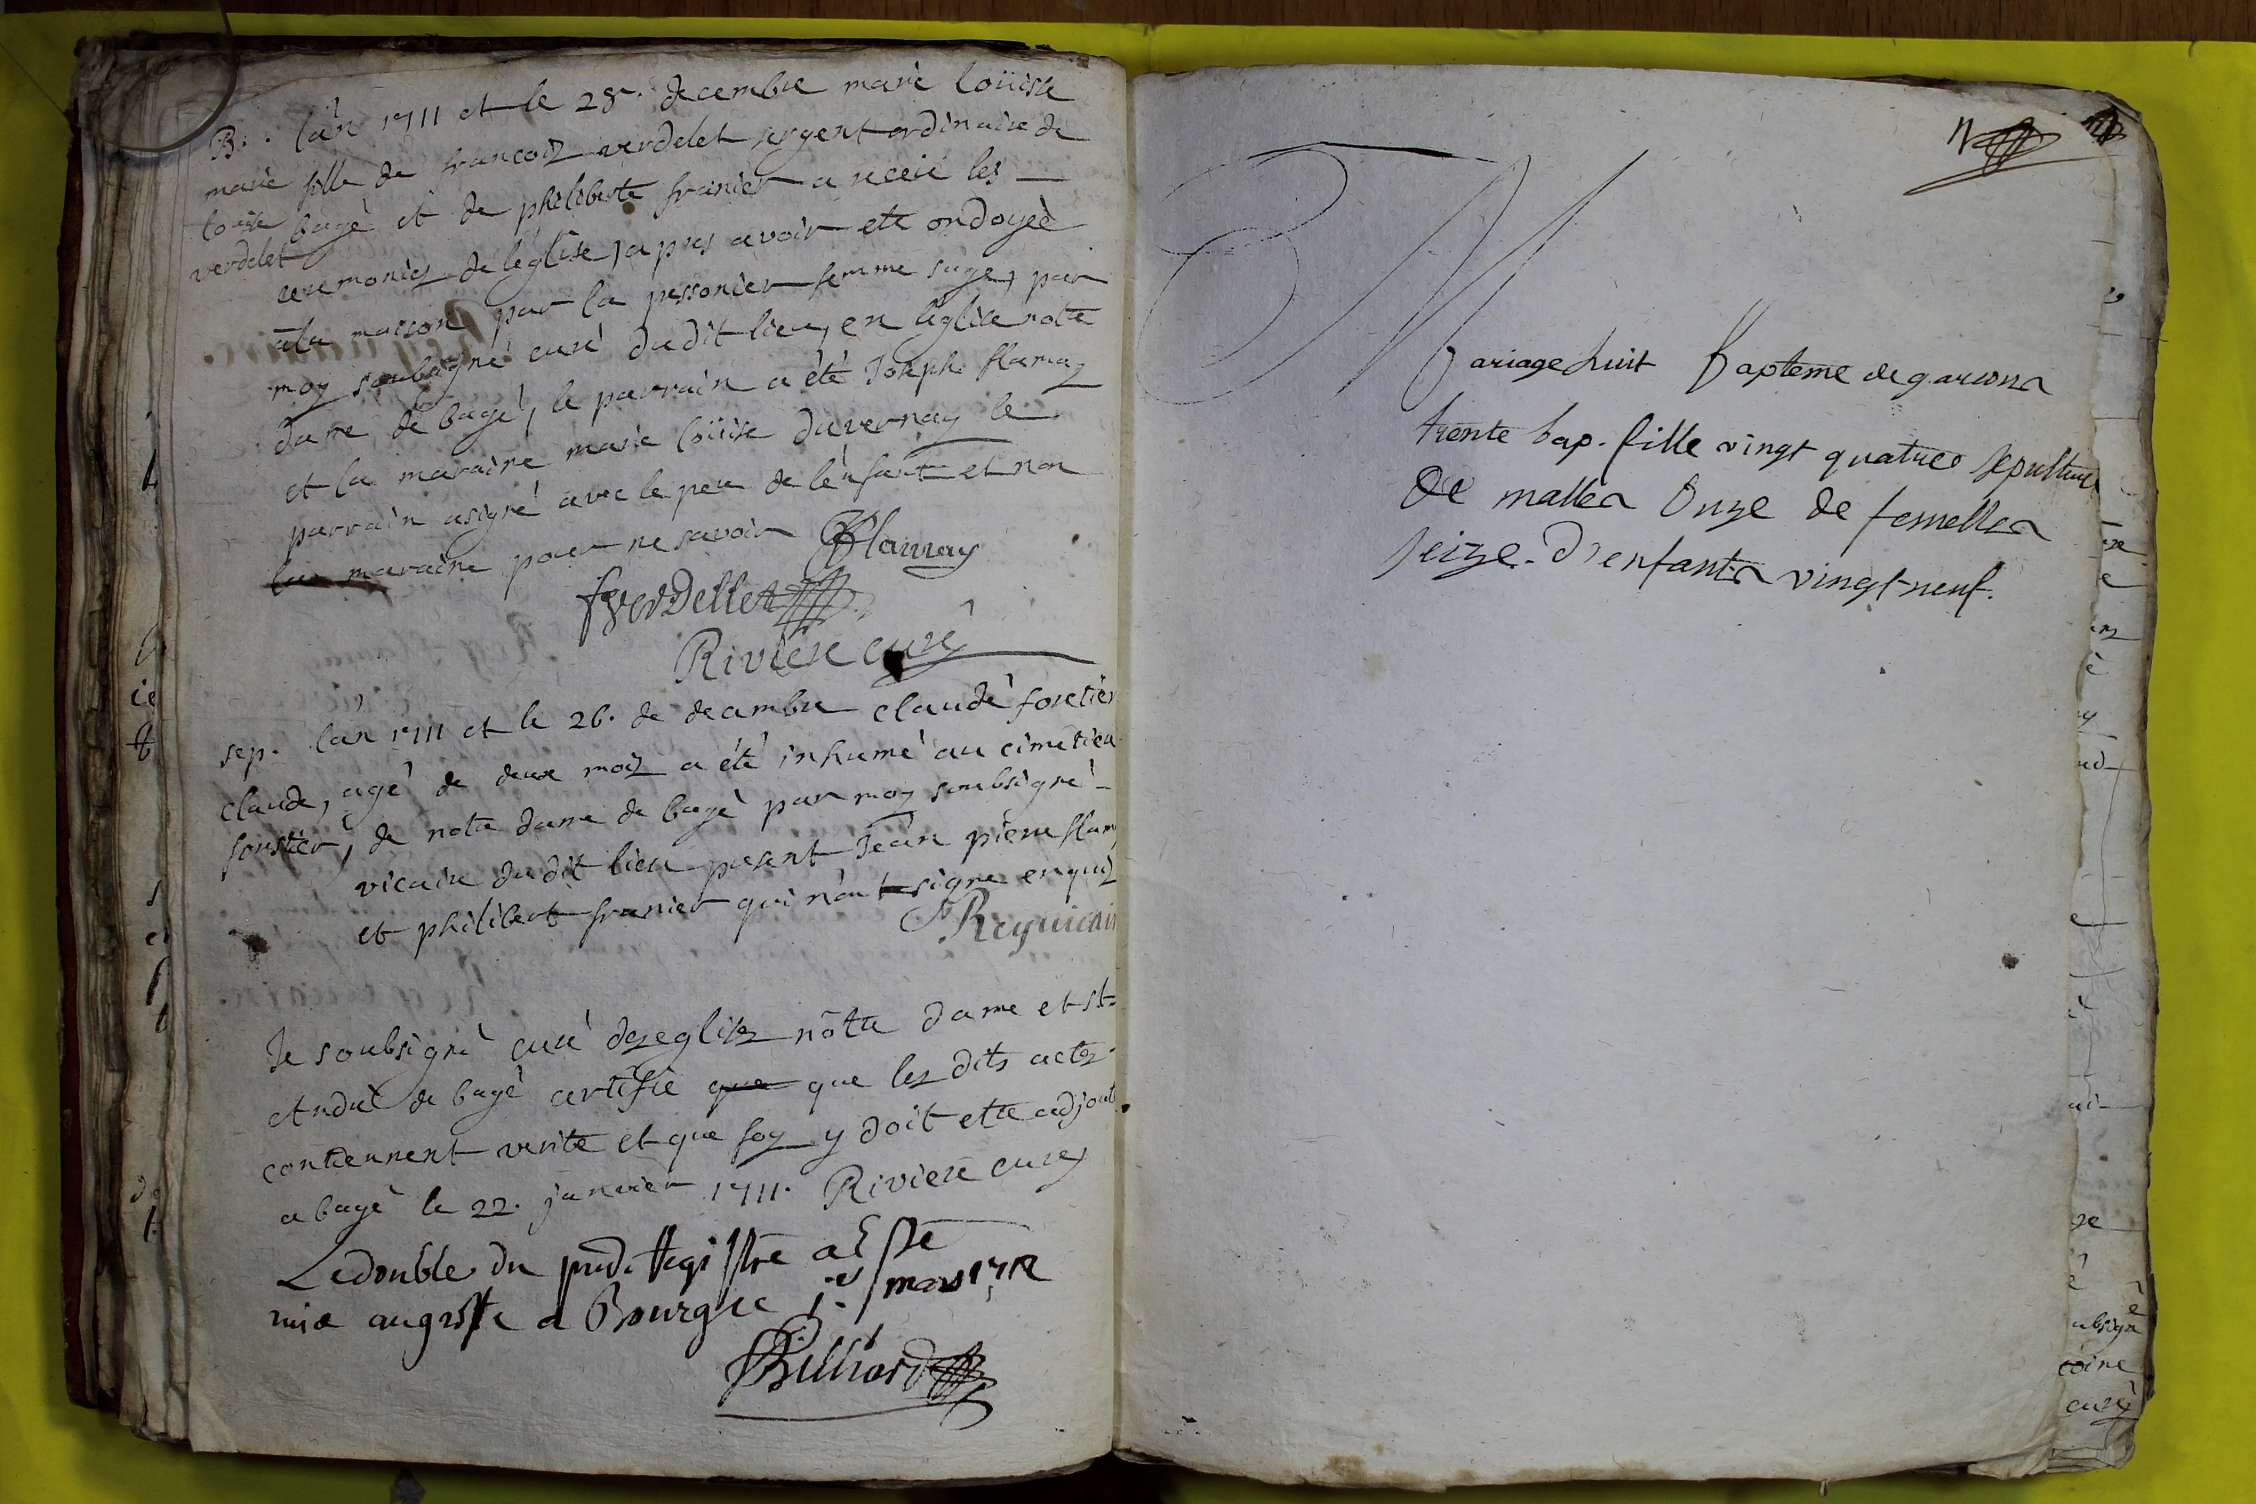 B. lan 1711 et le 28e. decembre marie loüise
marie fille de francoiz verdelet sergent ordinaire de
loüise bagé et de philiberte franier a receü les
verdelet
ceremoniez de leglise, apres avoir ete ondoyée
a la maison par la pessonier femme sage, par
moy soubsigné curé dudit lieu, en l'église notre
dame de bagé, le parrain a été Joseph flamaz
et la maraine marie loüise duvernay le
parrain asigné avec le pere de lenfant et non
la maraine pour ne savoir Flamay
fverdellet
Riviere curé
sep. lan 1711 et le 26. de decembre claude foretier
claude, agé de deux moiz a été inhumé au cimetiere
forêtier, de notre dame de bagé par moy soubsigné
vicaire dudit lieu present Jean pierre flam
et philibert franier qui nont signe enquiz
Reguicair
Je soubsigné curé dezeglisez nôtre dame et st
André de bagé certifie que que lez dits actez
contiennent verite et que foy y doit etre adjout
a bagé le 22. janvier 1711. Riviere curé
Le double du prnd. Registre a Este
mis au greffe a Bourg le jer mars 1712
Billiard
Mariage huit Bapteme de garcons
trente bap. fille vingt quatre sepulture
De malles Onze de femelles
seize. D'enfants vingt neuf.